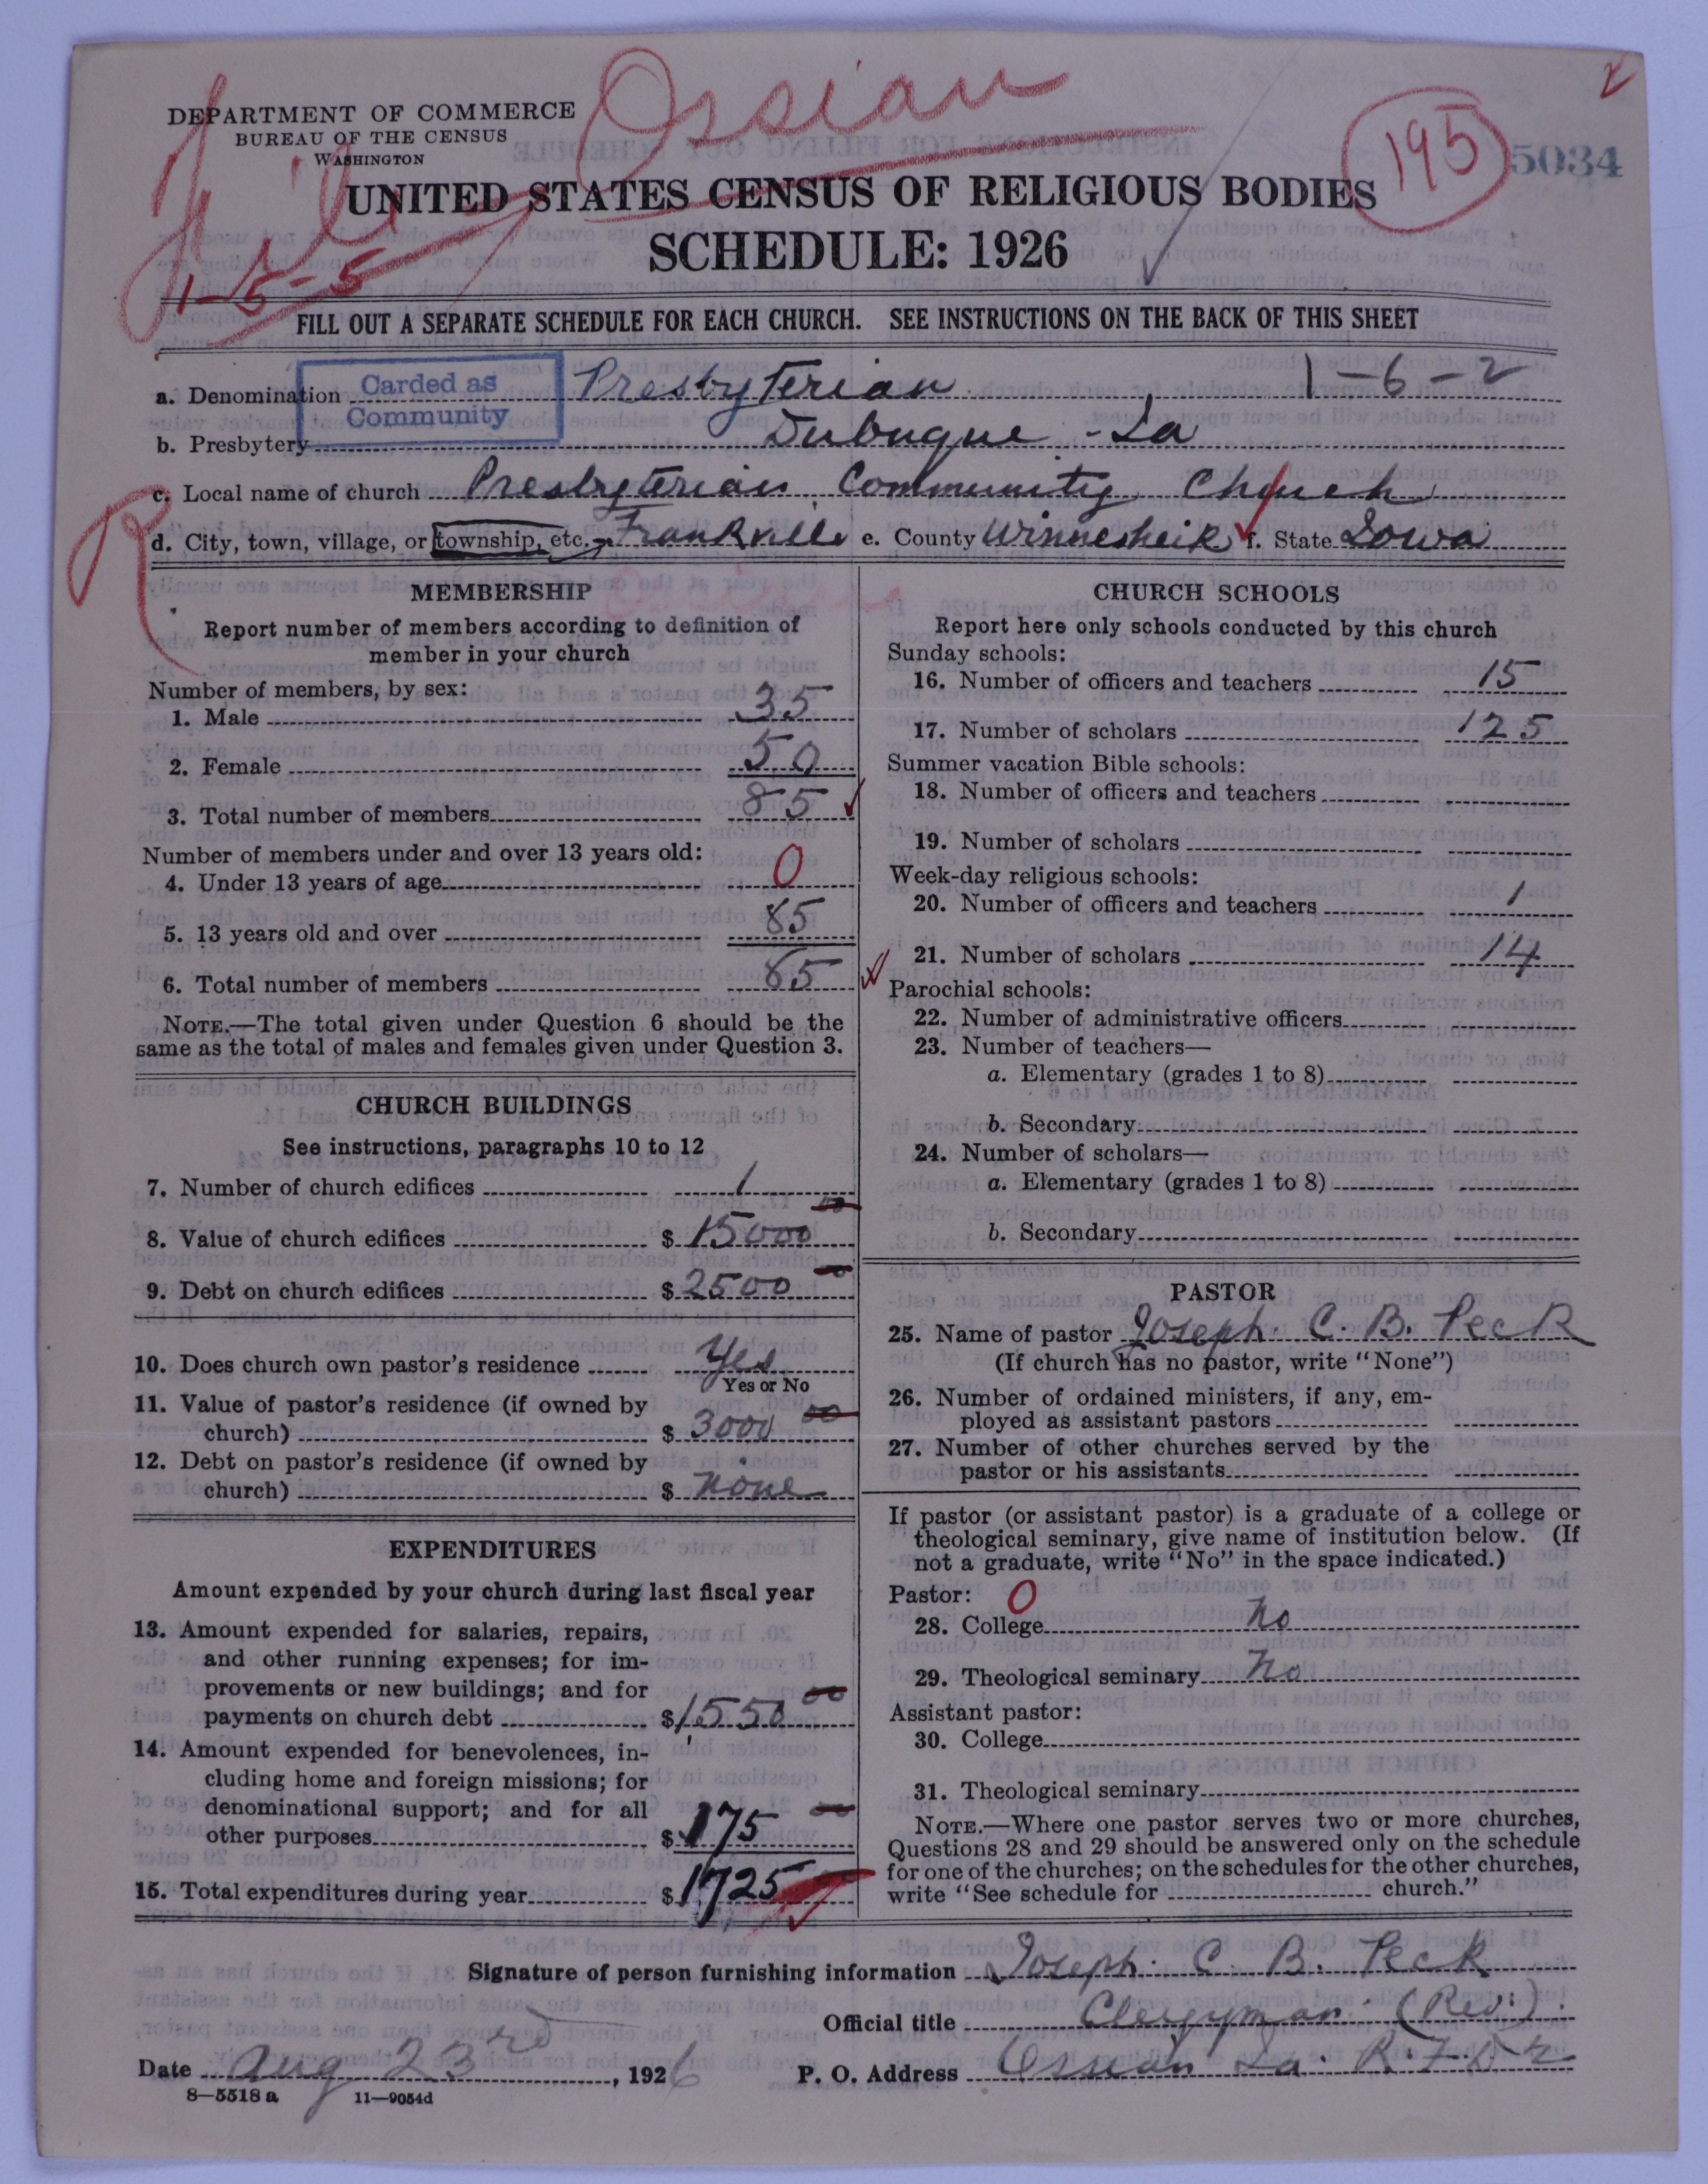 Ossian
DEPARTMENT OF COMMERCE
BUREAU OF THE CENSUS
WASHINGTON
195
5034
UNITED STATES CENSUS OF RELIGIOUS BODIES
SCHEDULE: 1926
1-5-5
FILL OUT A SEPARATE SCHEDULE FOR EACH CHURCH. SEE INSTRUCTIONS ON THE BACK OF THIS SHEET
Carded as
Community
a. Denomination Presbyterian 1-6-2
b. Presbytery Dubuque - Ia
c. Local name of church Presbyterian Community Church
R
d. City, town, village, or township, etc. Frankville e. County Winnesheik f. State Iowa
MEMBERSHIP
Report number of members according to definition of
member in your church
Number of members, by sex:
1. Male 35
2. Female 50
3. Total number of members 85
Number of members under and over 13 years old:
4. Under 13 years of age 0
5. 13 years old and over 85
6. Total number of members 85
NOTE.—The total given under Question 6 should be the
same as the total of males and females given under Question 3.
CHURCH BUILDINGS
See instructions, paragraphs 10 to 12
7. Number of church edifices 1
8. Value of church edifices $ 15000 00
9. Debt on church edifices $ 2500 00
10. Does church own pastor's residence Yes
Yes or No
11. Value of pastor's residence (if owned by
church) $ 3000 00
12. Debt on pastor's residence (if owned by
church) $ none
EXPENDITURES
Amount expended by your church during last fiscal year
13. Amount expended for salaries, repairs,
and other running expenses; for im-
provements or new buildings; and for
payments on church debt $ 1550 00
14. Amount expended for benevolences, in-
cluding home and foreign missions; for
denominational support; and for all
other purposes $ 175 00
15. Total expenditures during year $ 1725
CHURCH SCHOOLS
Report here only schools conducted by this church
Sunday schools:
16. Number of officers and teachers 15
17. Number of scholars 125
Summer vacation Bible schools:
18. Number of officers and teachers
19. Number of scholars
Week-day religious schools:
20. Number of officers and teachers 1
21. Number of scholars 14
Parochial schools:
22. Number of administrative officers
23. Number of teachers—
a. Elementary (grades 1 to 8)
b. Secondary
24. Number of scholars—
a. Elementary (grades 1 to 8)
b. Secondary
PASTOR
25. Name of pastor Joseph C. B. Peck
(If church has no pastor, write "None")
26. Number of ordained ministers, if any, em-
ployed as assistant pastors
27. Number of other churches served by the
pastor or his assistants
If pastor (or assistant pastor) is a graduate of a college or
theological seminary, give name of institution below. (If
not a graduate, write "No" in the space indicated.)
Pastor: 0
28. College No
29. Theological seminary No
Assistant pastor:
30. College
31. Theological seminary
NOTE.—Where one pastor serves two or more churches,
Questions 28 and 29 should be answered only on the schedule
for one of the churches; on the schedules for the other churches,
write "See schedule for church."
Signature of person furnishing information Joseph C. B. Peck
Official title Clergyman (Rev.)
Date Aug 23rd, 1926 P. O. Address Ossian Ia. R.F.D 2
8—5518 a 11—9054d